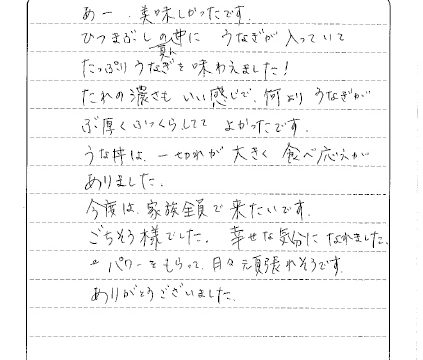 あー、美味しかったです。
ひつまぶしの中に うなぎが入っていて
たっぷりうなぎを味わえました!
たれの濃さも いい感じで、何より うなぎが
ぶ厚くふっくらしてて よかったです。
うな丼は、一切れが 大きく 食べ応えが
ありました。
今度は、家族全員で 来たいです。
ごちそう様でした。幸せな気分に なれました。
パワーをもらって、日々 頑張れそうです。
ありがとうございました。